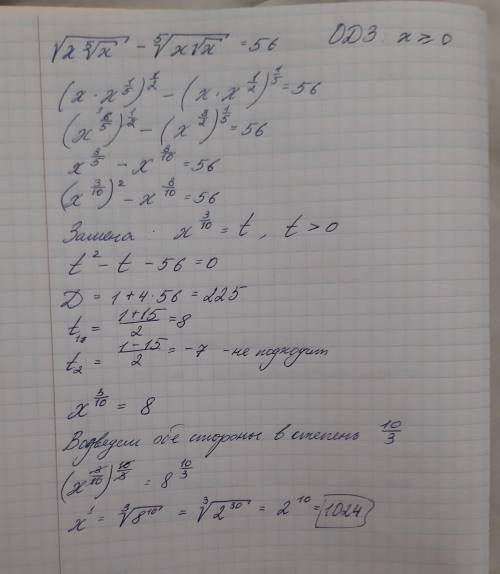 √(x ⁵√x) − ⁵√(x√x) = 56   ОДЗ: x ≥ 0
(x · x^(1/5))^(1/2) − (x · x^(1/2))^(1/5) = 56
(x^(6/5))^(1/2) − (x^(3/2))^(1/5) = 56
x^(3/5) − x^(3/10) = 56
(x^(3/10))^2 − x^(3/10) = 56
Замена: x^(3/10) = t, t > 0
t^2 − t − 56 = 0
D = 1 + 4 · 56 = 225
t₁ = (1+15)/2 = 8
t₂ = (1−15)/2 = −7 - не подходит
x^(3/10) = 8
Возведем обе стороны в степень 10/3
(x^(3/10))^(10/3) = 8^(10/3)
x^1 = ³√(8^10) = ³√(2^30) = 2^10 = 1024